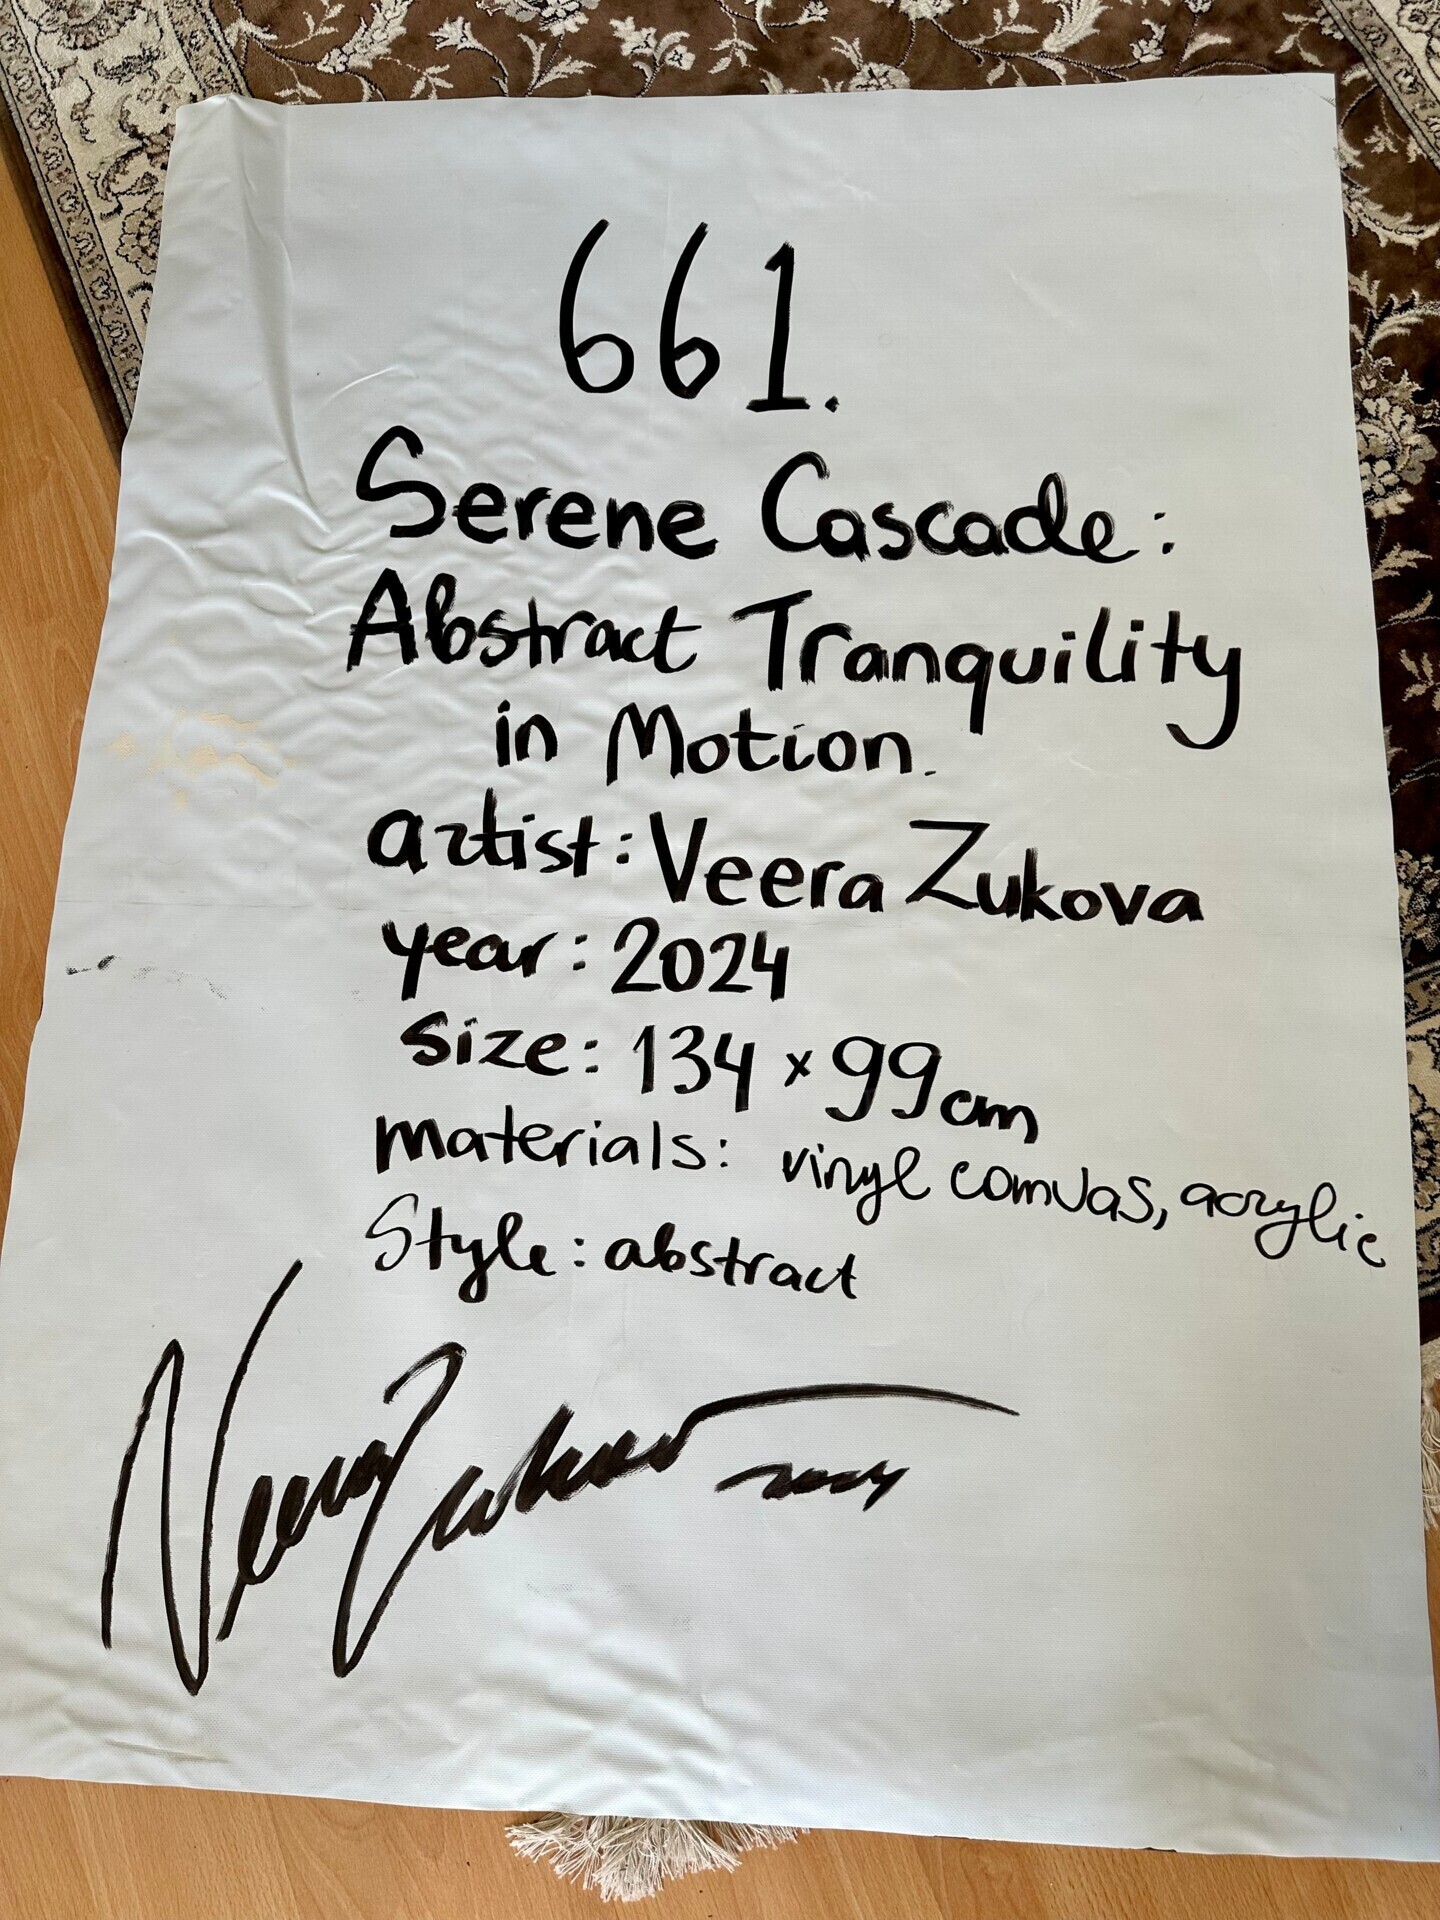 661.
Serene Cascade:
Abstract Tranquility
in Motion.
artist: Veera Zukova
year: 2024
size: 134 x 99cm
materials: vinyl comvas, acrylic
Style: abstract
Veera Zukova
2024